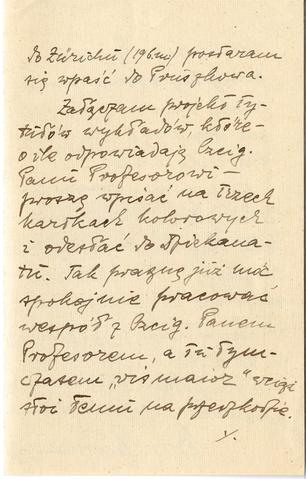 do Zürichu (196.m) postaram
się wpaść do Pruszkowa.
Załączam projekt ty-
tułów wykładów, które -
o ile odpowiadają Czcig.
Panu Profesorowi -
proszę wpisać na trzech
kartkach kolorowych
i odesłać do Dziekana-
tu. Tak pragnę już móc
spokojnie pracować
wespół z Czcig. Panem
Profesorem, a tu tym-
czasem „vis maior” wciąż
stoi temu na przeszkodzie.